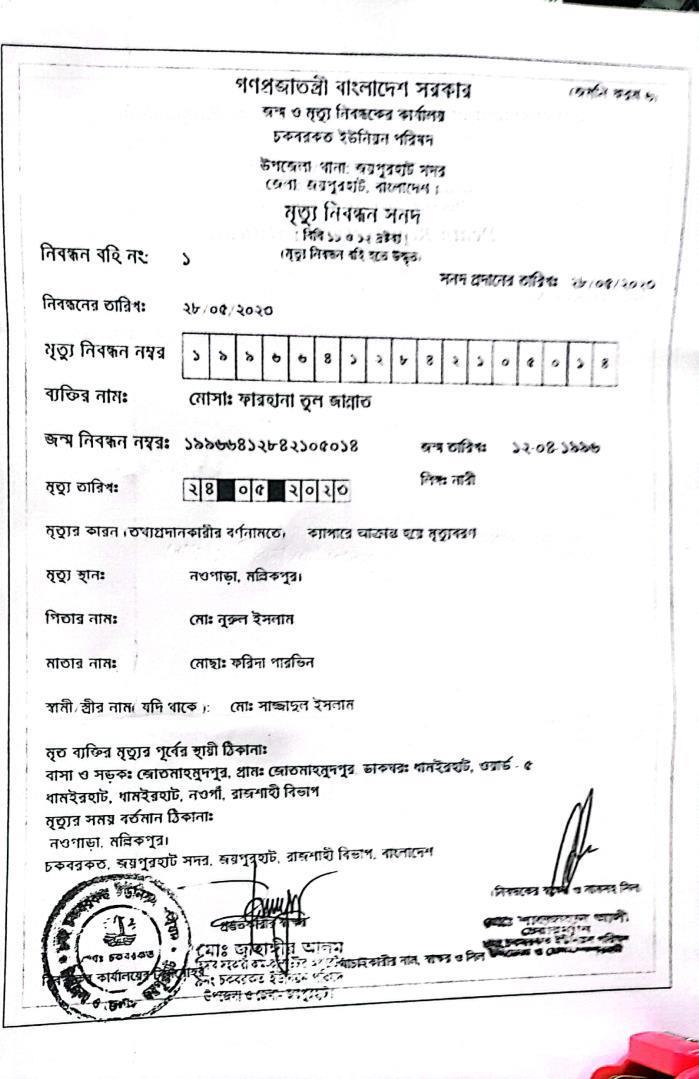 গণপ্রজাতন্ত্রী বাংলাদেশ সরকার
জন্ম ও মৃত্যু নিবন্ধকের কার্যালয়
চকবরকত ইউনিয়ন পরিষদ
উপজেলা/থানা: জয়পুরহাট সদর
জেলা: জয়পুরহাট, বাংলাদেশ।
মৃত্যু নিবন্ধন সনদ
(বিধি ১১ ও ১২ দ্রষ্টব্য)
(মৃত্যু নিবন্ধন বহি হতে উদ্ধৃত)
নিবন্ধন বহি নং: ১
সনদ প্রদানের তারিখঃ ২৮/০৫/২০২৩
নিবন্ধনের তারিখ: ২৮/০৫/২০২৩
মৃত্যু নিবন্ধন নম্বর ১ ৯ ৯ ৬ ৬ ৪ ১ ২ ৮ ৪ ২ ১ ০ ৫ ০ ১ ৪
ব্যক্তির নাম: মোসাঃ ফারহানা তুল জান্নাত
জন্ম নিবন্ধন নম্বরঃ ১৯৯৬৬৪১২৮৪২১০৫০১৪ জন্ম তারিখঃ ১২-০৪-১৯৯৬
মৃত্যু তারিখঃ ২৪ ০৫ ২০২৩ লিঙ্গঃ নারী
মৃত্যুর কারন (তথ্যপ্রদানকারীর বর্ণনামতে) ক্যান্সারে আক্রান্ত হয়ে মৃত্যুবরণ
মৃত্যু স্থান: নওপাড়া, মল্লিকপুর।
পিতার নাম: মোঃ নুরুল ইসলাম
মাতার নাম: মোছাঃ ফরিদা পারভিন
স্বামী/স্ত্রীর নাম( যদি থাকে ): মোঃ সাজ্জাদুল ইসলাম
মৃত ব্যক্তির মৃত্যুর পূর্বের স্থায়ী ঠিকানাঃ
বাসা ও সড়ক: জোতমাহমুদপুর, গ্রাম: জোতমাহমুদপুর, ডাকঘর: ধামইরহাট, ওয়ার্ড - ৫
ধামইরহাট, ধামইরহাট, নওগাঁ, রাজশাহী বিভাগ
মৃত্যুর সময় বর্তমান ঠিকানা:
নওপাড়া, মল্লিকপুর।
চকবরকত, জয়পুরহাট সদর, জয়পুরহাট, রাজশাহী বিভাগ, বাংলাদেশ
(নিবন্ধকের স্বাক্ষর ও নামসহ সিল)
মোঃ জাহাঙ্গীর আলম
চেয়ারম্যান
৯নং চকবরকত ইউনিয়ন পরিষদ
উপজেলা ও জেলা- জয়পুরহাট।